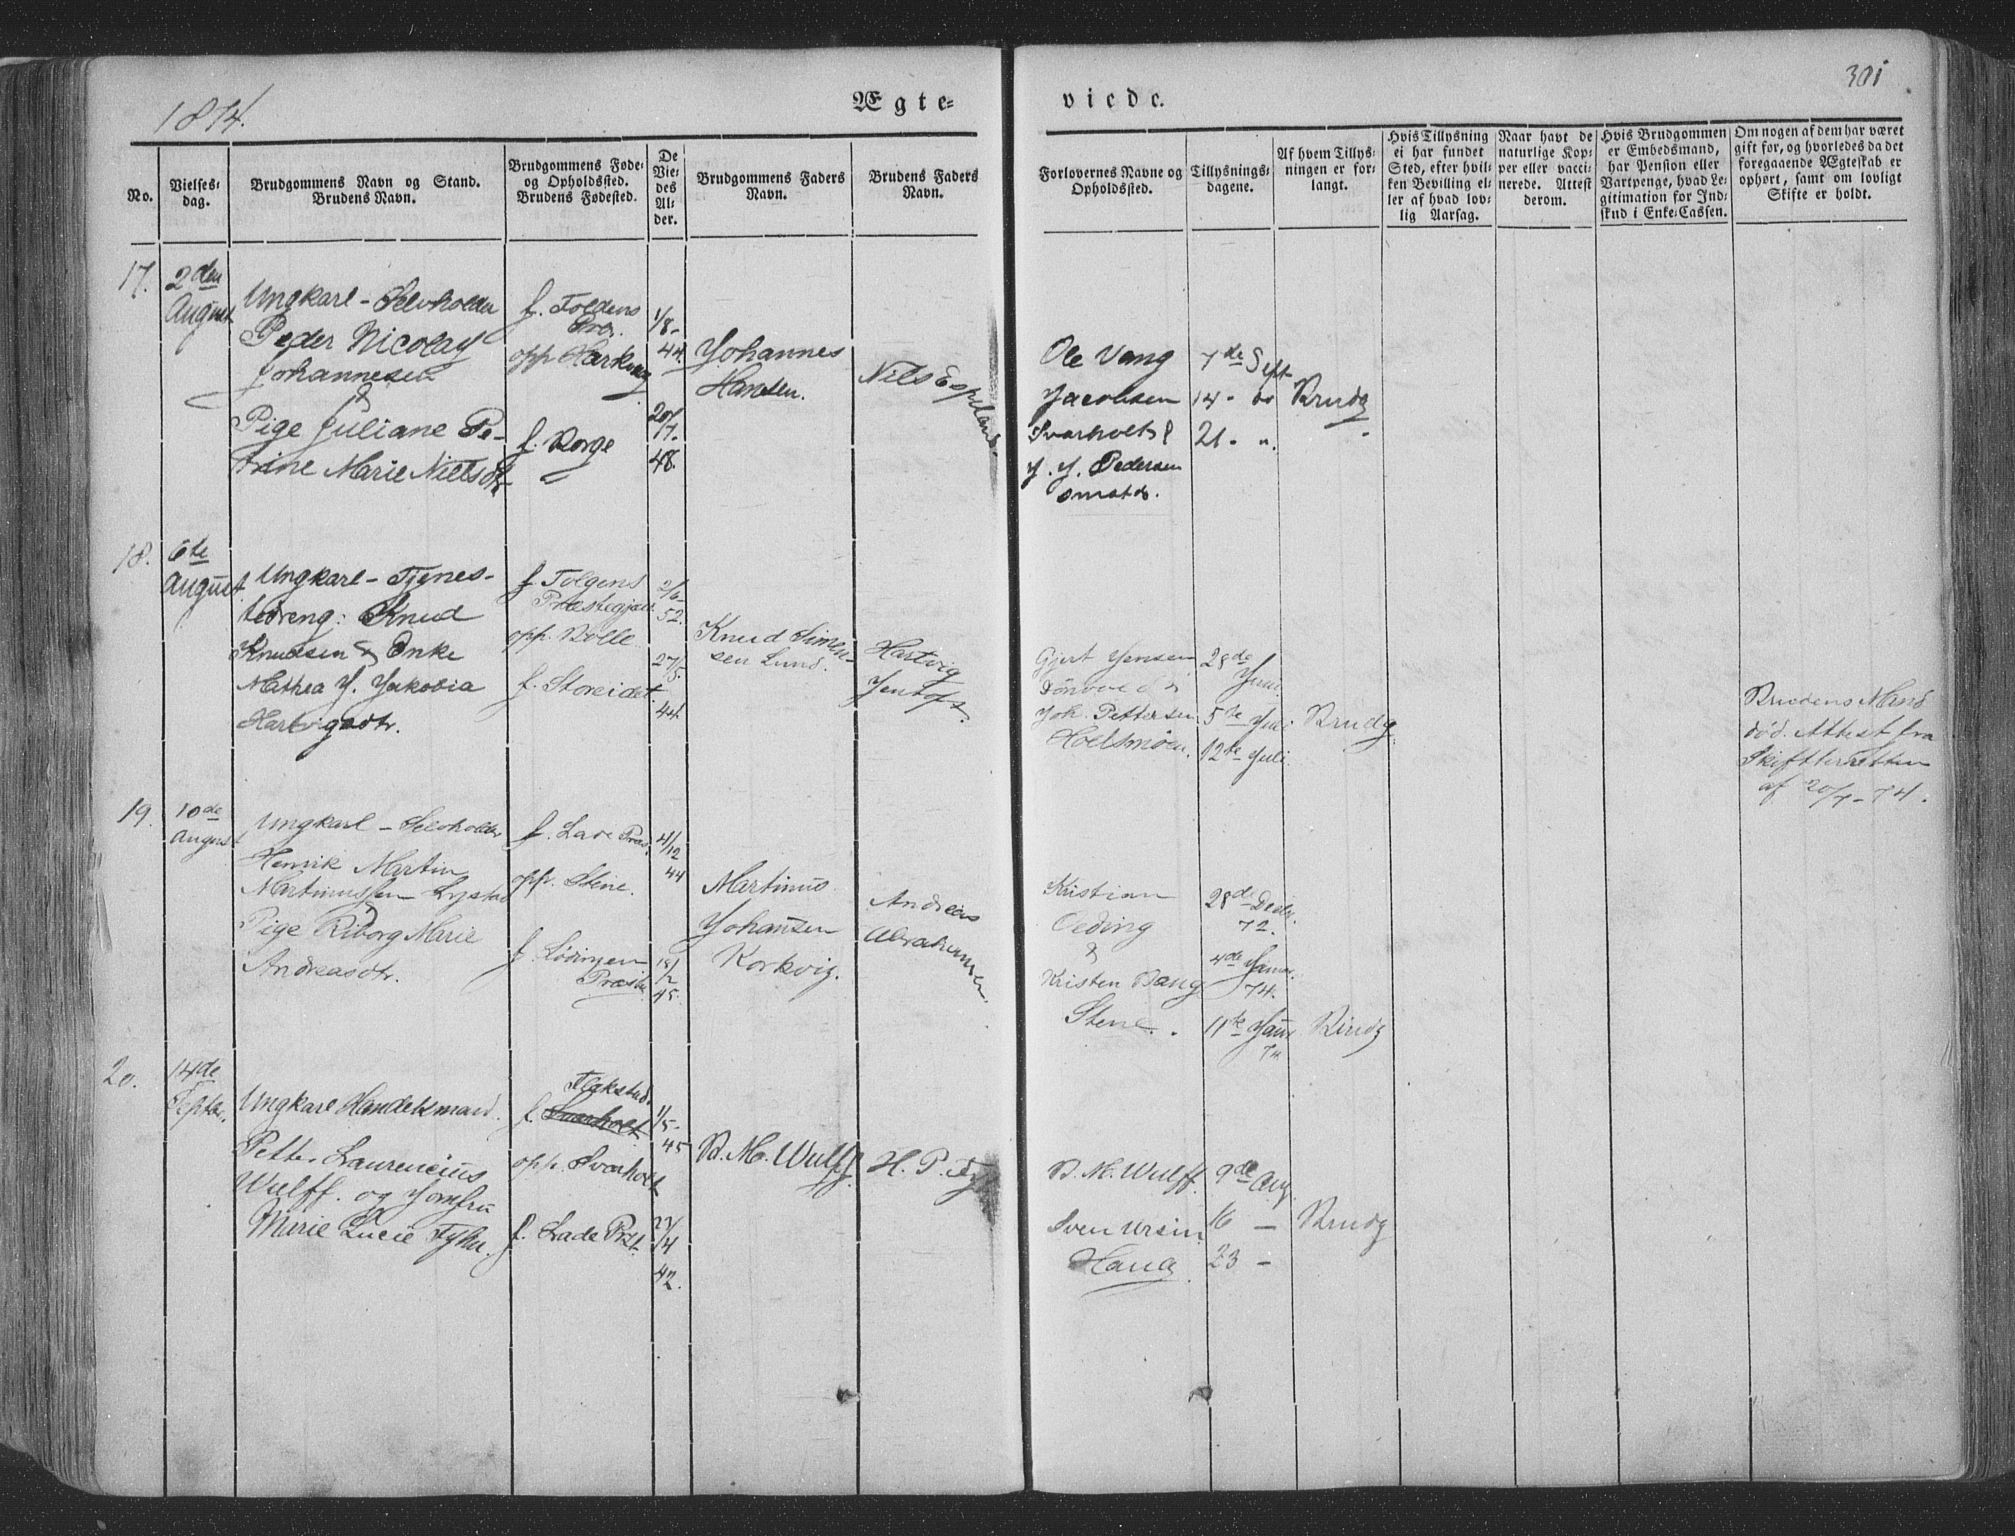 1874.
Ægte=
viede.
301
No.
Vielses=
dag.
Brudgommens Navn og Stand.
Brudens Navn.
Brudgommens Føde=
og Opholdssted.
Brudens Fødested.
De
Vie=
des
Al=
der.
Brudgommens Faders
Navn.
Brudens Faders
Navn.
Forlovernes Navne og
Opholdssted.
Tillysnings=
dagene.
Af hvem Tillys=
ningen er for=
langt.
Hvis Tillysning
ei har fundet
Sted, efter hvil=
ken Bevilling el=
ler af hvad lov=
lig Aarsag.
Naar havt de
naturlige Kop=
per eller vacci=
nerede. Attest
derom.
Hvis Brudgommen
er Embedsmand,
har Pension eller
Vartpenge, hvad Le=
gitimation for Ind=
skud i Enke=Cassen.
Om nogen af dem har været
gift før, og hvorledes da det
foregaaende Ægteskab er
ophørt, samt om lovligt
Skifte er holdt.
17.
2den
August
Ungkarl - Selvholder
Peder Nicolay
Johannesen
&
Pige Juliane Pe-
trine Marie Nielsdtr
f. Foldens
Præ.
opp.
f. Borge
1/8-
44.
20/
7.
48.
Johannes
Hansen.
Niels Espeland.
Ole Vang
Jacobsen
Svarholt &
J. J. Pedersen
7de Sept
14 - do
21 - "
Brudg
18.
6te
August
Ungkarl - Tjenes-
tedreng: Knud
Knudsen & Enke
Mathea J. Jakobia
Hartvigsdtr.
f. Tolgens
Præstegjæld
opp. Bolle
f. Storeidet
2/6-
52.
27/5.
44.
Knud Simen-
sen Lund.
Hartvig
Jentoft.
Gjert Jensen
Joh. Pettersen
Holsmoen.
28de
Juni.
5te Juli
12te Juli.
Brudg.
Brudens Mand
død. Attest fra
Skifteretten
af 20/7-74.
19.
10de
August
Ungkarl - Selvholder
Henrik Martin
Martinussen
&
Pige Riborg Marie
Andreasdtr.
f. Lade Præs.
opp. Stene.
f. Lødingen
Præst.
21/12
44
18/
/2
45.
Martinus
Johansen
Korkvig.
Andreas
Abrahamsen.
Kristian
Oeding
&
Kristen Bang
Stene.
28de Decbr.
72.
4de Januar
74.
11te Janr
74
Brudg
20.
14de
Septbr.
Ungkarl Handelsmand
Petter Laurencius
Wulff. og Jomfru
Marie Lucie
f. Svarholt
opp. Svarholt
f. Lade Præt.
1/5-
45
27/
/4
42.
B. M. Wulff.
H. P.
B. M. Wulff.
Sven Ursin
9de Aug.
16 -
23 -
Brudg